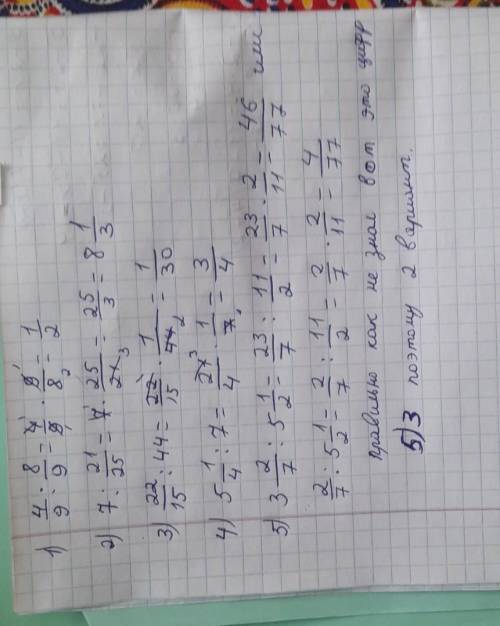 1) 4/9 : 8/9 = 4/9 · 9/8 = 1/2
2) 7 : 21/25 = 7 · 25/21 = 25/3 = 8 1/3
3) 22/15 : 44 = 22/15 · 1/44 = 1/30
4) 5 1/4 : 7 = 21/4 · 1/7 = 3/4
5) 3 2/7 : 5 1/2 = 23/7 : 11/2 = 23/7 · 2/11 = 46/77 или
2/7 : 5 1/2 = 2/7 : 11/2 = 2/7 · 2/11 = 4/77
правильно как не знаю вот это цифр
5) 3 поэтому 2 вариант.